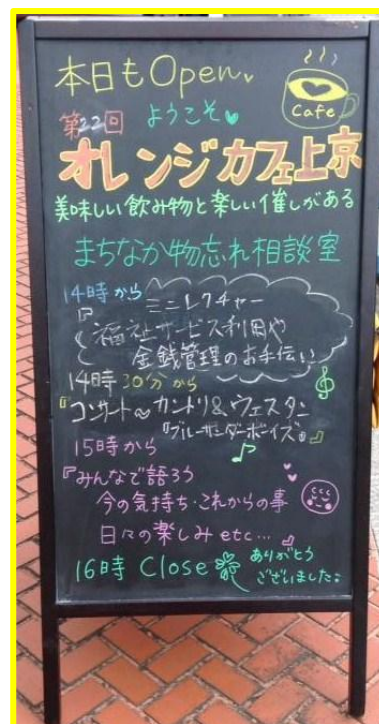 本日もOpen
Cafe
第22回 ようこそ
オレンジカフェ上京
美味しい飲み物と楽しい催しがある
まちなか物忘れ相談室
14時から ミニレクチャー
『福祉サービス利用や
金銭管理のお手伝い
14時30分から
『コンサート〜カントリ&ウェスタン
『ブルーサンダーボーイズ』』
15時から
『みんなで語ろう
今の気持ち・これからの事
日々の楽しみetc…』
16時 Close
ありがとう
ございました。